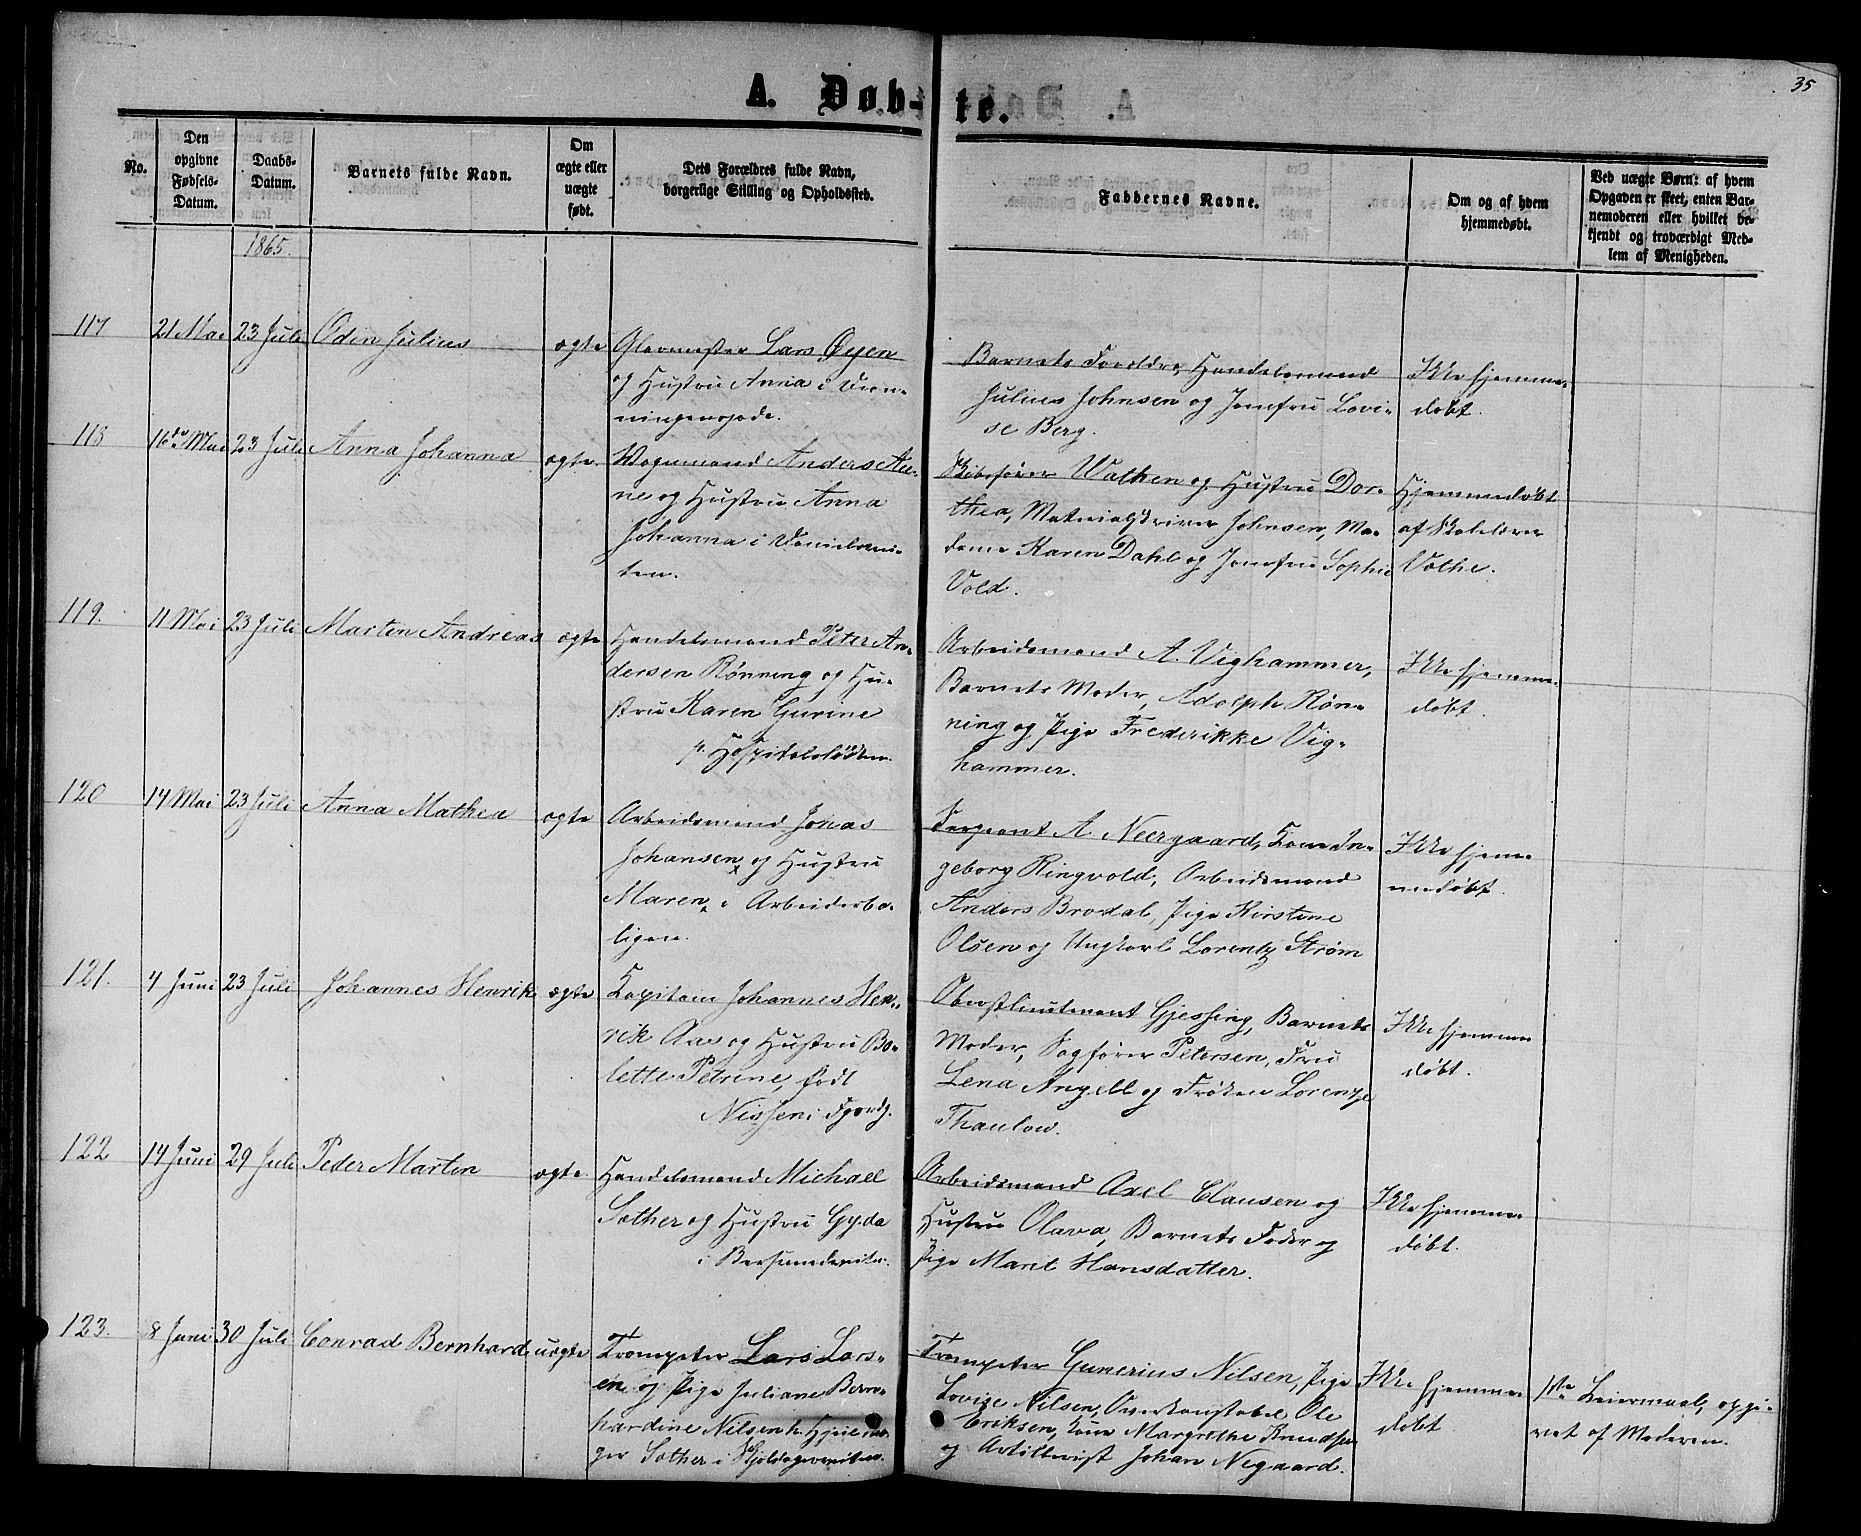 35
A. Døb-te.
No.
Den
opgivne
Fødsels-
Datum.
Daabs-
Datum.
Barnets fulde Navn.
Om
ægte eller
uægte
født.
Dets Forældres fulde Navn,
borgerlige Stilling og Opholdssted.
Faddernes Navne.
Om og af hvem
hjemmedøbt.
Ved uægte Børn: af hvem
Opgaven er skeet, enten Bar-
nemoderen eller hvilket be-
kjendt og troværdigt Med-
lem af Menigheden.
1865.
117
21 Mai
23 Juli
Odin Julius
ægte
Glarmester Lars Øyen
og Hustru Anna i
Barnets Forældre, Handelsmand
Julius Johnsen og Jomfru Lovi-
se Berg.
Ikke hjemme-
døbt.
118
16de Mai
23 Juli
Anna Johanna
ægte.
Vognmand Anders Au-
ne og Hustru Anna
Johanna i Danielsvei-
ten.
Skibsfører Wathen og Hustru Dor-
thea, Materialskriver Johnsen, Ma-
dame Karen Dahl og Jomfru Sophie
Vold.
Hjemmedøbt
af Skolelærer
Vothe.
119.
11 Mai
23 Juli
Marten Andreas
ægte
Handelsmand Peter An-
dersen Rønning og Hu-
stru Karen Gurine
p. Hospitalsløkken.
Arbeidsmand A. Vighammer,
Barnets Moder, Adolph Røn-
ning og Pige Frederikke Vig-
hammer.
Ikke hjemme-
døbt.
120
14 Mai
23 Juli
Anna Mathea
ægte
Arbeidsmand Jonas
Johansen og Hustru
Maren i Arbeiderbo-
ligen.
Sergeant A. Neergaard, Kone In-
geborg Ringvold, Arbeidsmand
Anders Brodal, Pige Kirstine
Olsen og Ungkarl Lorentz Strøm
Ikke hjem-
medøbt.
121.
4 Juni
23 Juli
Johannes Henrik
ægte
Kapitain Johannes Hen-
rik Aas og Hustru Bo-
lette Petrine, født
Nissen i Fjordg.
Oberstlieutenant Gjessing, Barnets
Moder, Sagfører Petersen, Fru
Lena Angell og Frøken Lorentze
Thaulow.
Ikke hjemme-
døbt.
122
14 Juni
29 Juli
Peder Martin
ægte
Handelsmand Michael
Sæther og Hustru Gyda
i
Arbeidsmand Axel Clausen og
Hustru Olava, Barnets Fader og
Pige Marit Hansdatter.
Ikke hjemme-
døbt.
123.
8 Juni
30 Juli
Conrad Bernhard
uægte
Trompeter Lars Lars-
en og Pige Juliane Bern-
hardine Nilsen h.
Sæther i Skjoldagerveiten.
Trompeter Gunerius Nilsen, Pige
Lovise Nilsen, Overkonstabel Ole
Eriksen, Kone Margrethe Knudsen
og Artillerist Johan Negaard.
Ikke hjemme-
døbt
1ste Leiermaal, opgi-
vet af Moderen.